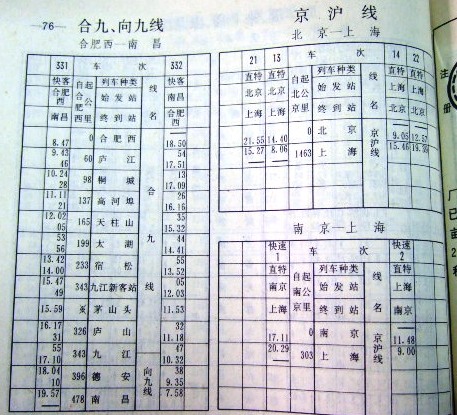 —76— 合九、向九线
合肥西—南 昌
331 车 次 332
快客 自起 列车种类 线 快客
合肥西 合公 始发站 南昌
南昌 肥里 终到站 名 合肥西
西
8.47 0 合肥西 18.50
9.43 54
46 60 庐 江 17.51
10.24 13
28 98 桐 城 合 17.09
11.11 26
21 137 高河埠 16.16
12.02 35
05 165 天柱山 15.32
53 九 44
56 199 太 湖 14.41
13.42 55
14.00 233 宿 松 13.52
15.47 05
49 343 九江新客站 线 12.03
15.59 茅山头 11.53
16.17 32
31 326 庐 山 11.18
55 47
17.10 343 九 江 10.32
18.04 向 38
10 396 德 安 九 9.35
19.57 478 南 昌 线 7.58
京 沪 线
北 京—上 海
21 13 车 次 14 22
直特 直特 自起 列车种类 线 直特 直特
北京 北京 北公 始 发 站 上海 上海
上海 上海 京里 终 到 站 名 北京 北京
21.55 14.40 0 北 京 京 9.05
15.27 8.06 1463 上 海 沪线 15.46
南 京—上 海
快速1 车 次 快速2
直特 自起 列车种类 线 直特
南京 南公 始 发 站 上海
上海 京里 终 到 站 名 南京
17.11 0 南 京 京 11.48
20.29 303 上 海 沪线 9.00
注
册